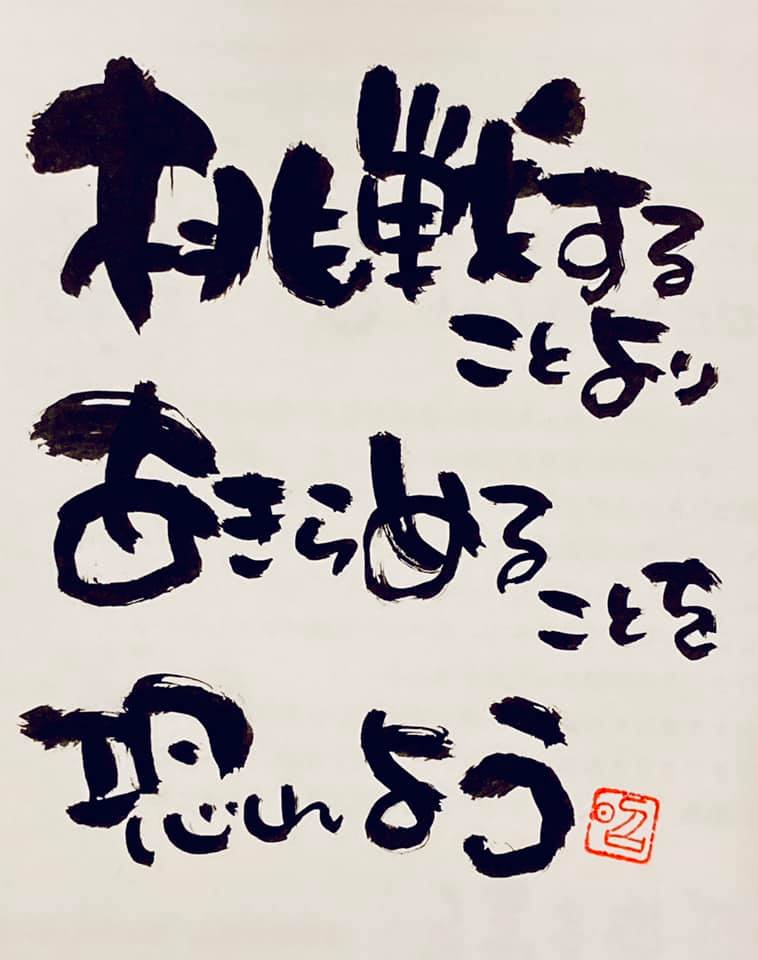 挑戦する
ことより
あきらめる
ことを
恐れよう